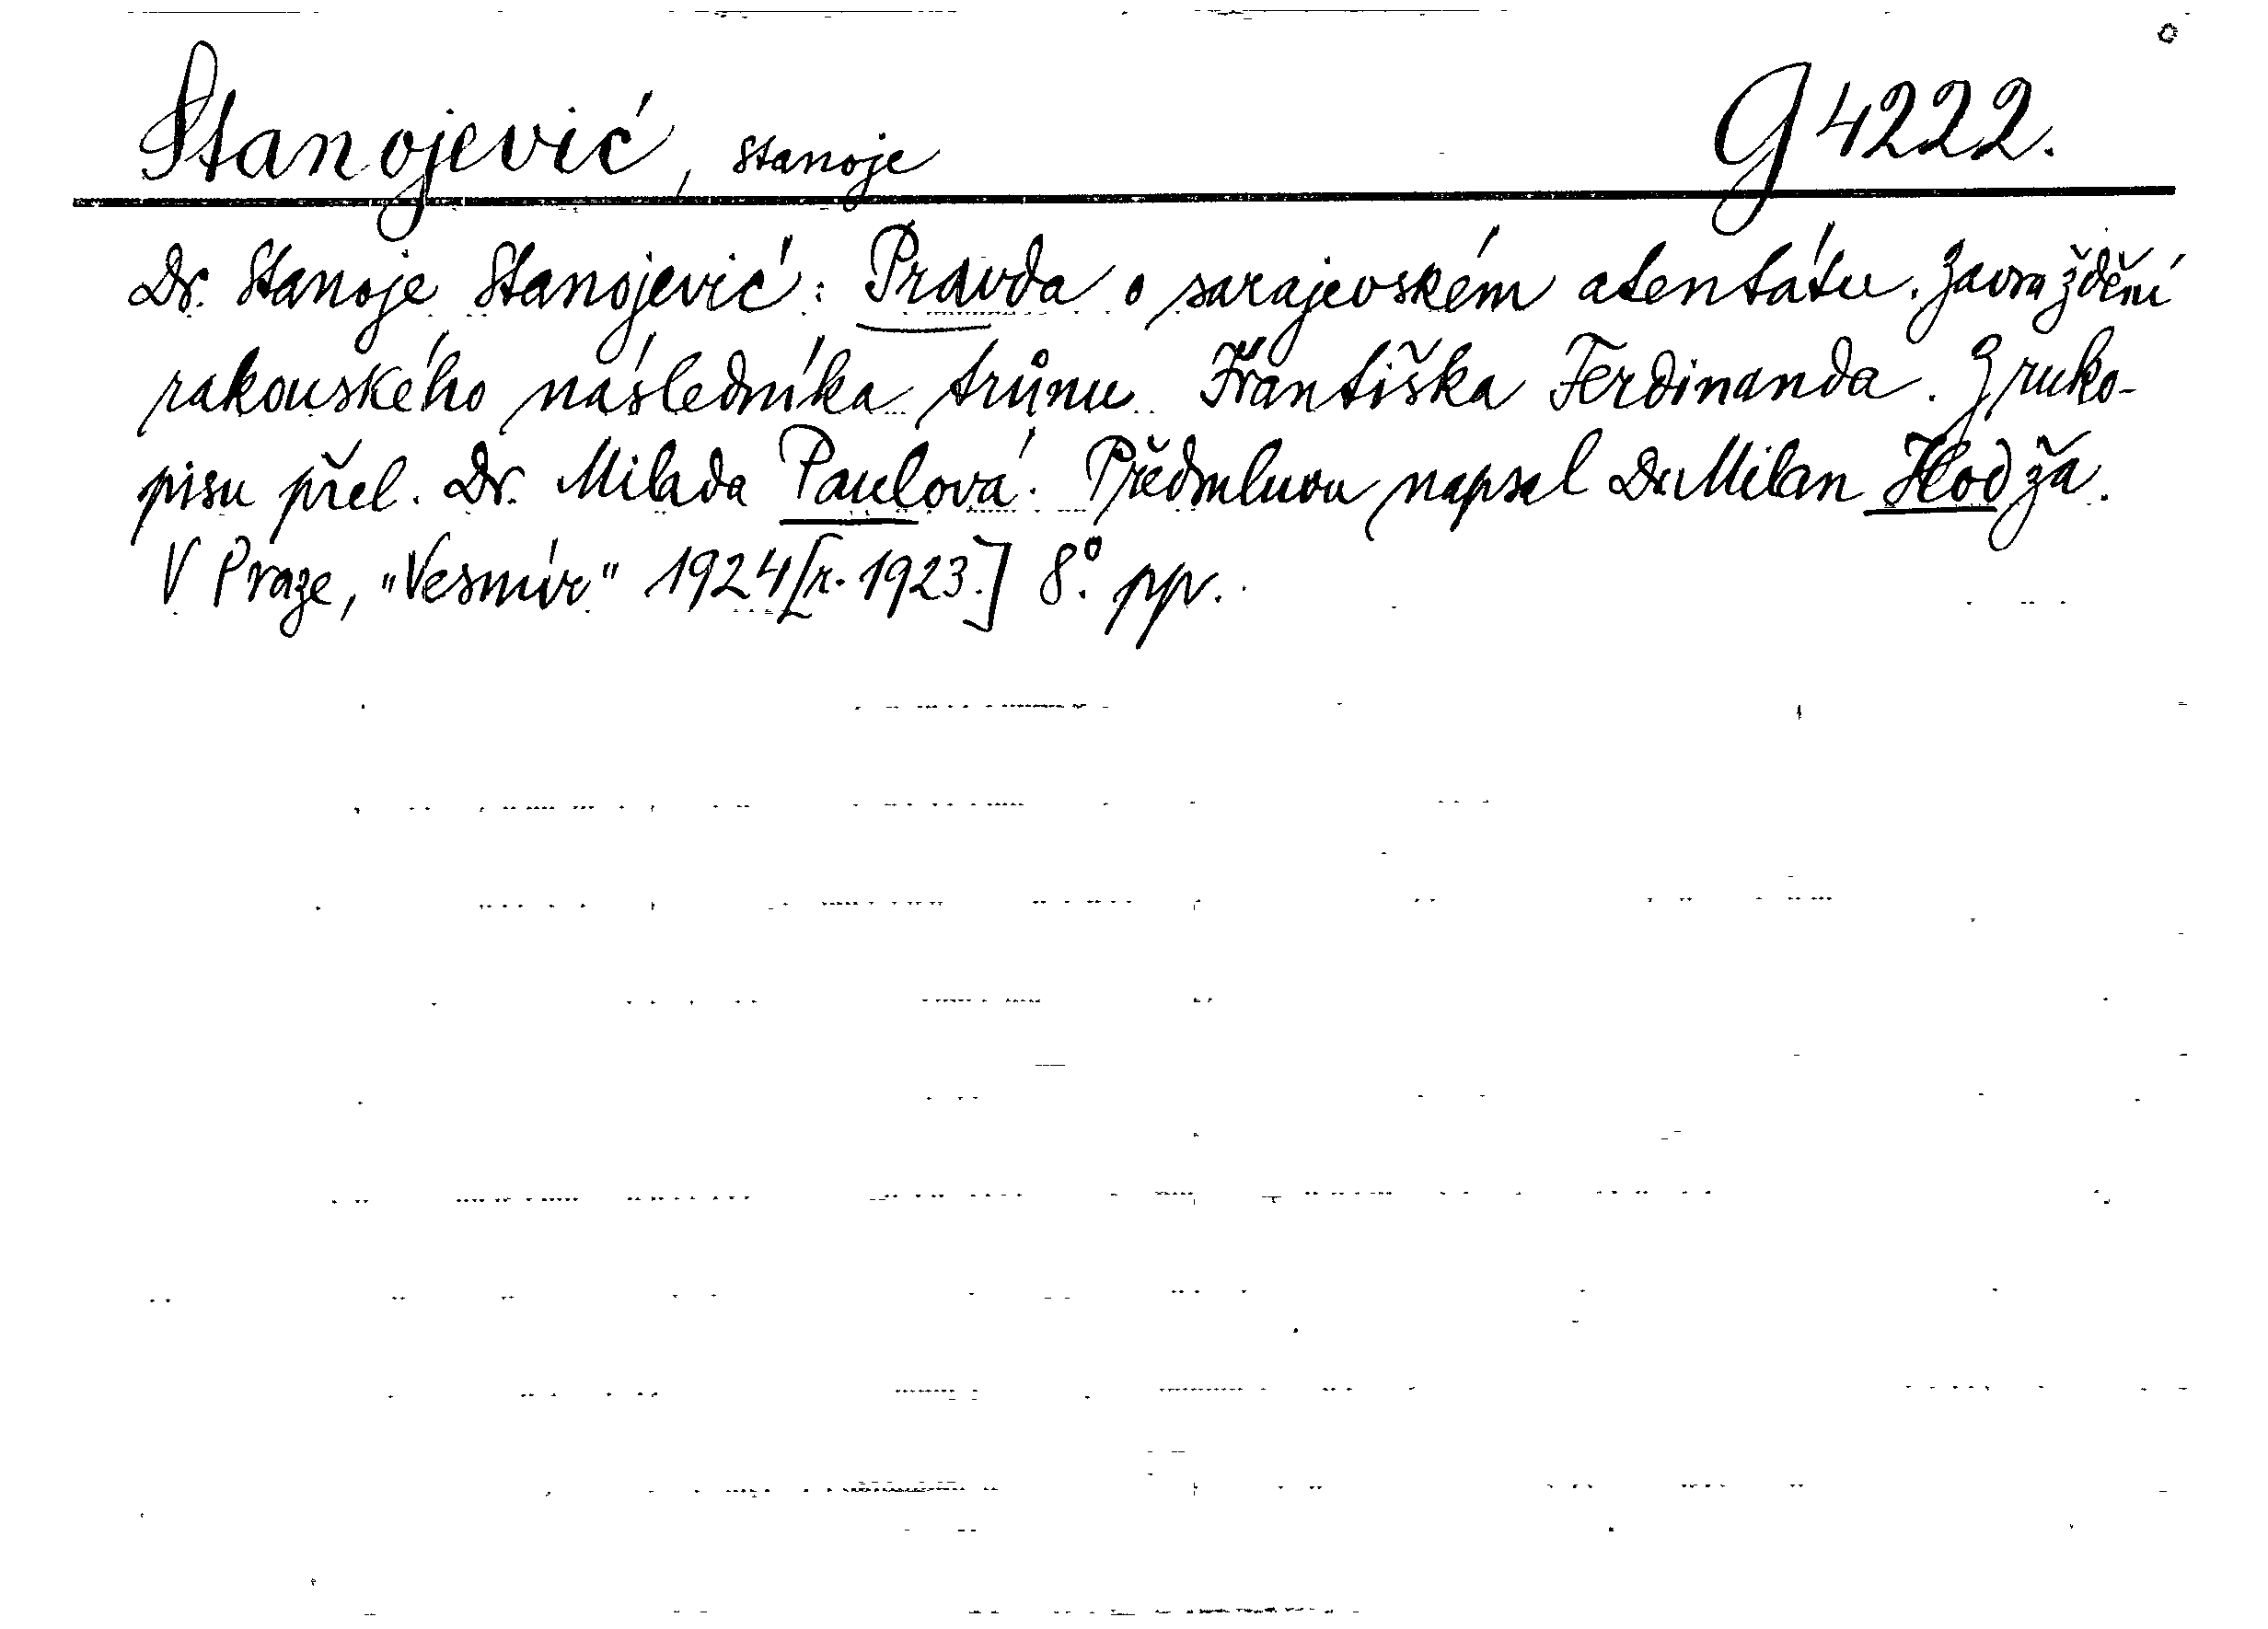 Stanojević, Stanoje G 4222.
Dr. Stanoje Stanojević: Pravda o sarajevském atentátu. Zavraždění
rakouského následníka trůnu Františka Ferdinanda. Z ruko-
pisu přel. Dr. Milada Paulová. Předmluvu napsal Dr. Milan Hodža.
V Praze, "Vesmír" 1924 [r. 1923.] 8°. pp.